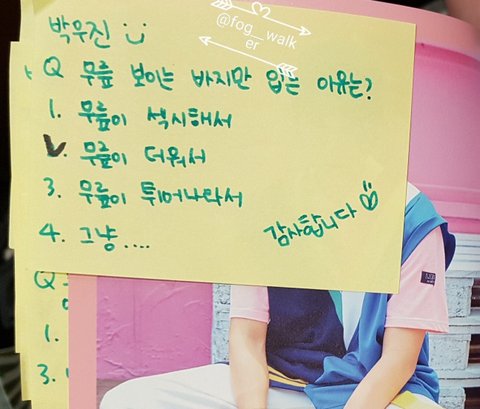 박우진
@fog_walk
er
Q 무릎 보이는 바지만 입는 이유는?
1. 무릎이 섹시해서
2. 무릎이 더워서
3. 무릎이 튀어나와서
4. 그냥....
감사합니다
Q
1.
3.